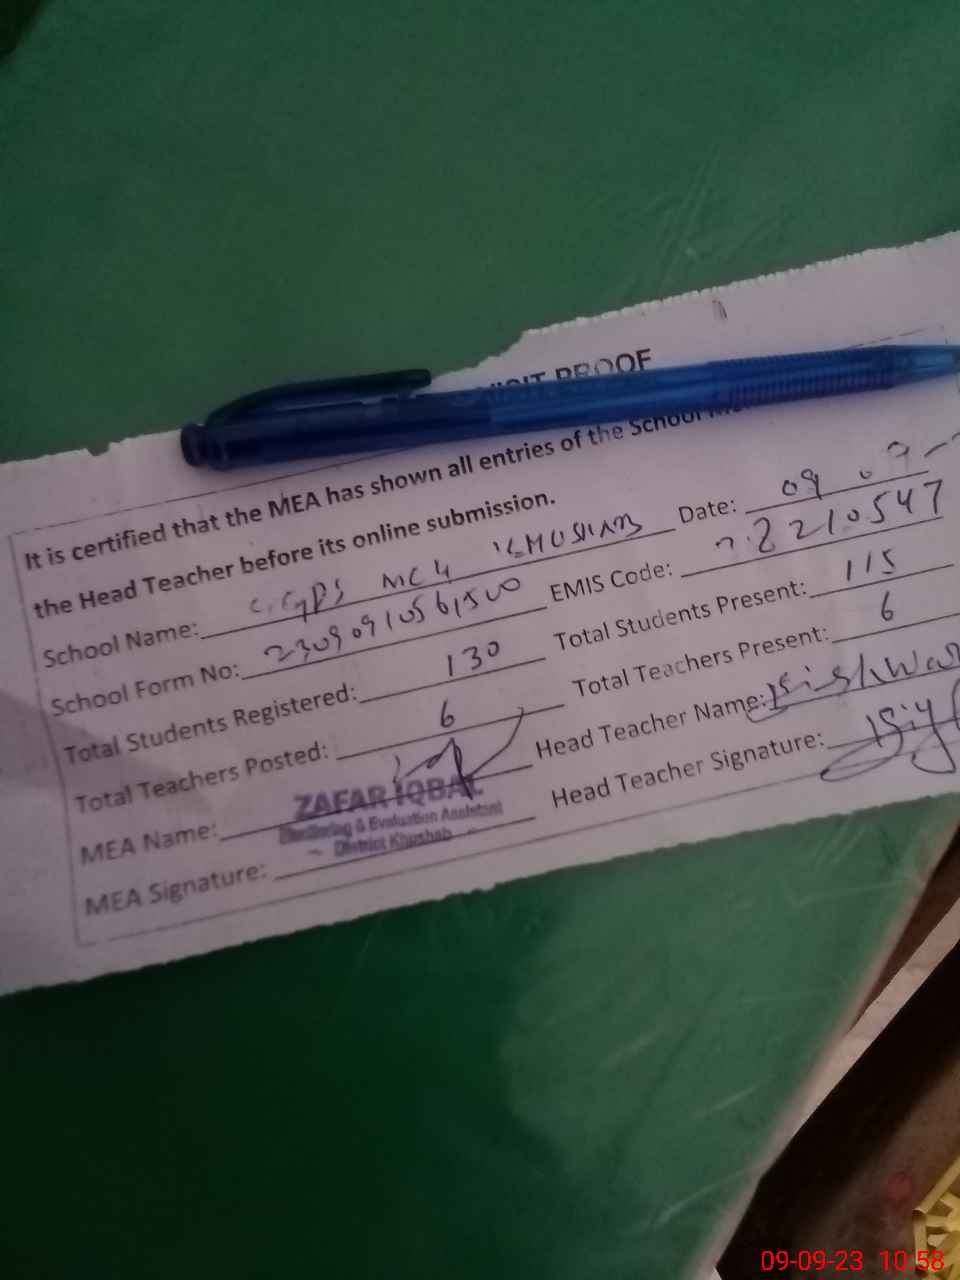 VISIT PROOF
It is certified that the MEA has shown all entries of the School
the Head Teacher before its online submission.
School Name: MC4 KHUSHAB Date: 09 09
School Form No: 23090910561500 EMIS Code: 2210547
Total Students Registered: 130 Total Students Present: 115
Total Teachers Posted: 6 Total Teachers Present: 6
MEA Name: ZAFAR IQBAL Head Teacher Name:
Monitoring & Evaluation Assistant
District Khushab
MEA Signature: Head Teacher Signature:
09-09-23 10:58